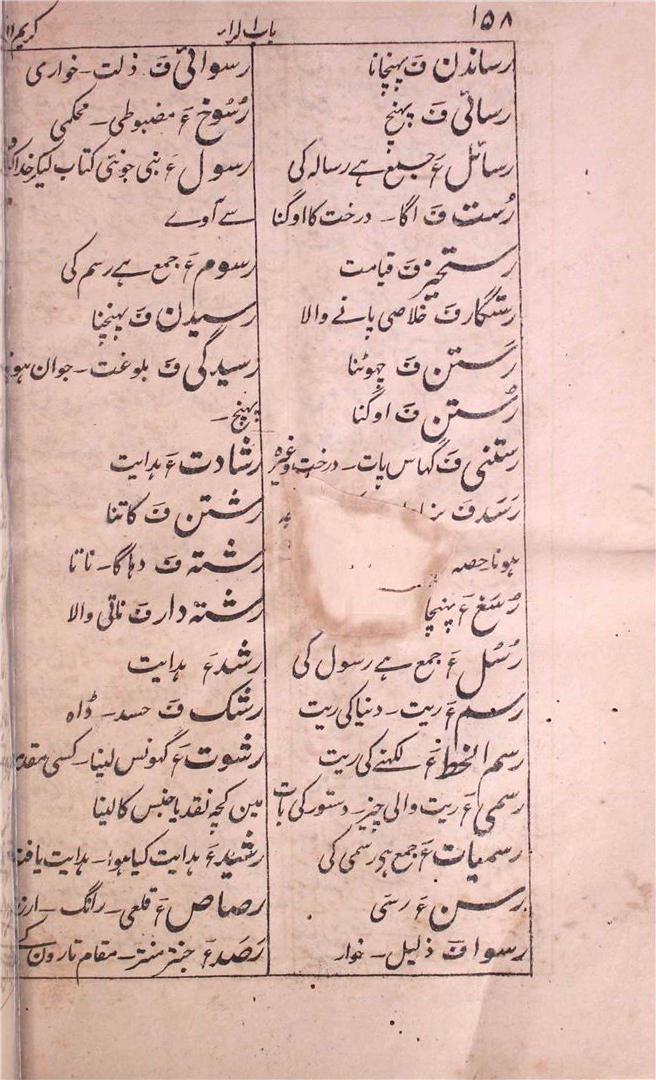 ۱۵۸
باب الراء
کریم ال
رساندن ف پہنچانا
رسائی ف پہنچ
رسائل ع جمع ہے رسالہ کی
رُست ف اگا۔ درخت کا اوگنا
رستخیز ف قیامت
رستگار ف خلاصی پانے والا
رَستن ف چھوٹنا
رُستن ف اوگنا
رستنی ف گھاس پات۔ درخت وغیرہ
رَسَد ف
ہونا۔ حصہ
رُسغ ع پہنچا
رُسُل ع جمع ہے رسول کی
رسم ع ریت۔ دنیا کی ریت
رسم الخط ع لکھنے کی ریت
رسمی ع ریت والی چیز۔ دستور کی بات
رسمیات ع جمع ہی رسمی کی
رسن ع رسّی
رسوا ف ذلیل۔ خوار
رسوائی ف ذلت۔ خواری
رُسُوخ ع مضبوطی۔ محکمی
رسول ع نبی جو نئی کتاب لیکر خدا
سے آوے
رسوم ع جمع ہے رسم کی
رسیدن ف پہنچنا
رسیدگی ف بلوغت۔ جوان ہونا
پہنچ۔
رشادت ع ہدایت
رشتن ف کاتنا
رشتہ ف دہاگا۔ ناتا
رشتہ دار ف ناتی والا
رشد ع ہدایت
رشک ف حسد۔ ڈاہ
رشوت ع گہونس لینا۔ کسی مقدمہ
مین کچہ نقد یا جنس کا لینا
رشید ع ہدایت کیا ہوا۔ ہدایت یافتہ
رصاص ع قلعی۔ رانگ۔
رَصَد ع جنتر منتر۔ مقام تارون کے